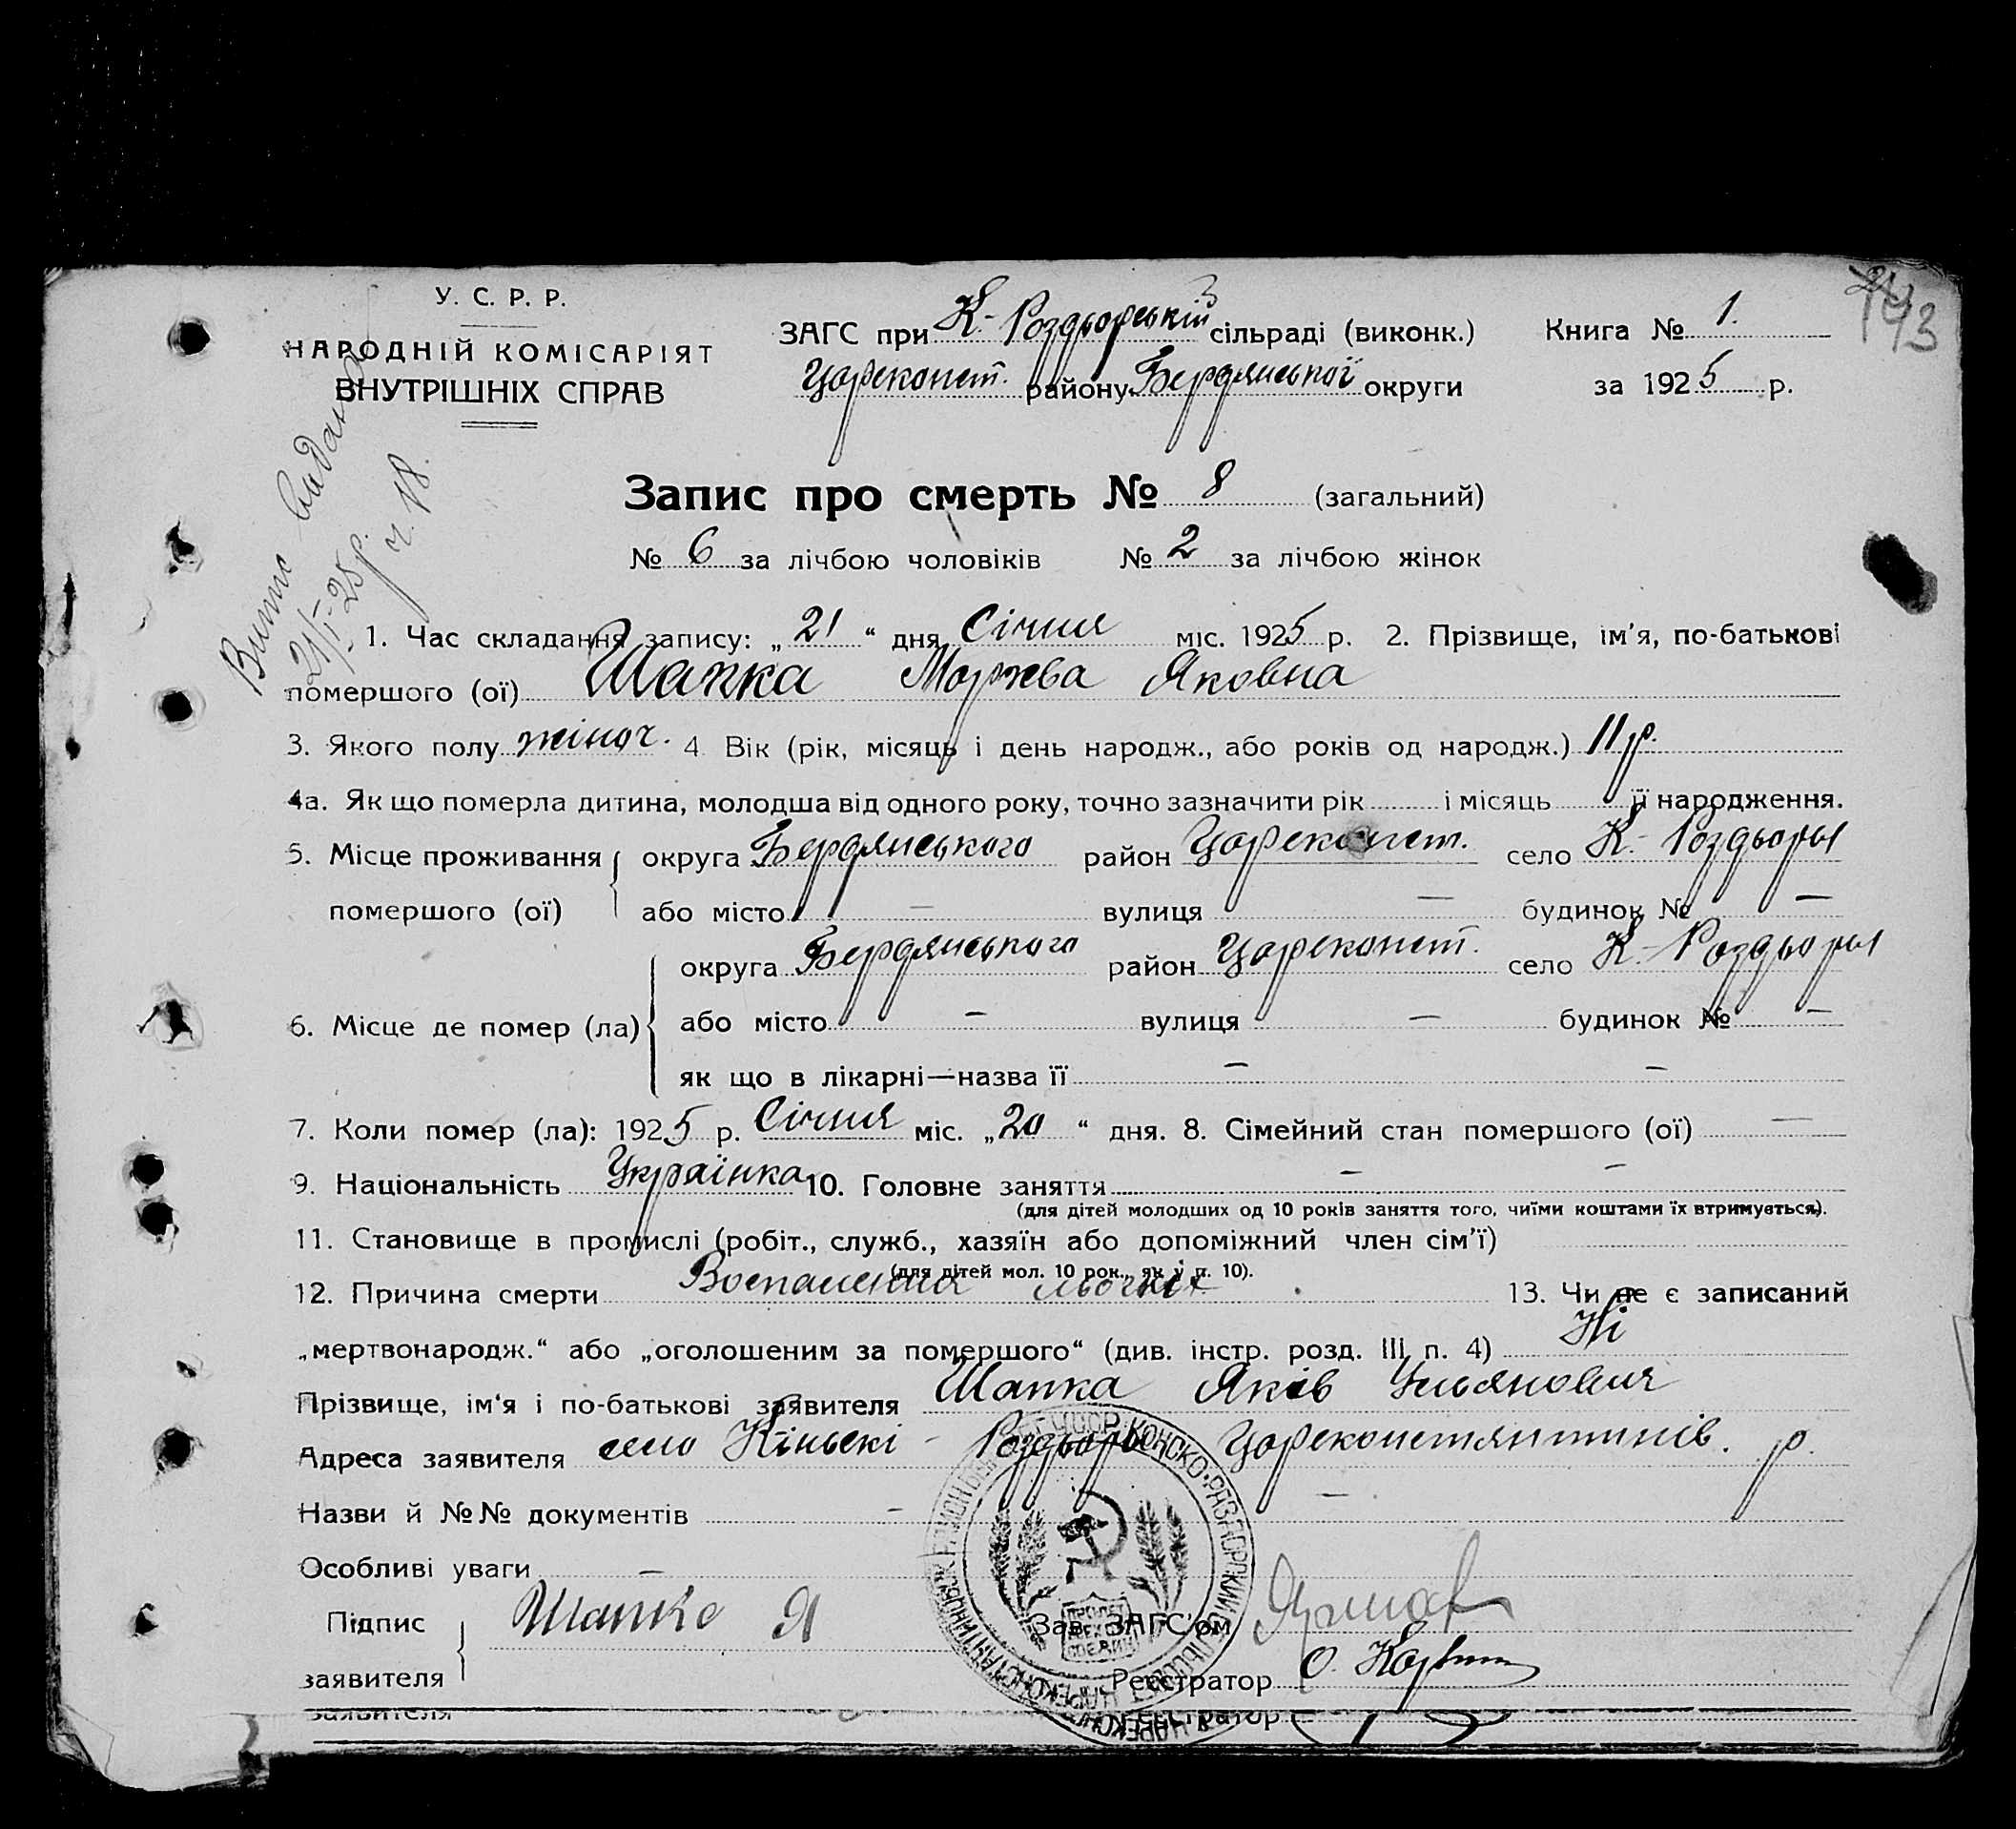 У. С. Р. Р.
НАРОДНІЙ КОМІСАРІЯТ
ВНУТРІШНІХ СПРАВ
ЗАГС при К.-Роздьорській сільраді (виконк.)
Цареконст. району Бердянської округи
Книга № 1.
за 1925 р.
143
Витяг видано
21/I-25 р.
ч. 18.
Запис про смерть № 8 (загальний)
№ 6 за лічбою чоловіків № 2 за лічбою жінок
1. Час складання запису: „21“ дня Січня міс. 1925 р. 2. Прізвище, ім'я, по-батькові
помершого (ої) Шапка Яковна
3. Якого полу жіноч. 4 Вік (рік, місяць і день народж., або років од народж.) 11 р.
4а. Як що померла дитина, молодша від одного року, точно зазначити рік і місяць її народження.
5. Місце проживання округа Бердянського район Цареконст. село К.-Роздьоры
помершого (ої) або місто — вулиця — будинок № —
округа Бердянського район Цареконст. село К.-Роздьоры
6. Місце де помер (ла) або місто — вулиця — будинок № —
як що в лікарні—назва її — —
7. Коли помер (ла): 1925 р. Січня міс. „20“ дня. 8. Сімейний стан помершого (ої) —
9. Національність Українка 10. Головне заняття — —
(для дітей молодших од 10 років заняття того, чиїми коштами їх втримується).
11. Становище в промислі (робіт., служб., хазяїн або допоміжний член сім'ї)
(для дітей мол. 10 рок., як у п. 10).
12. Причина смерти Воспаления льогких 13. Чи не є записаний
„мертвонародж.“ або „оголошеним за помершого“ (див. інстр. розд. III п. 4) Ні
Прізвище, ім'я і по-батькові заявителя Шапка Яків Ульянович
Адреса заявителя село Кіньскі - Роздьоры Цареконстянтинів. р.
Назви й №№ документів — —
Особливі уваги —
Підпис
заявителя Шапка Я
Зав. ЗАГС'ом
Реєстратор О.
КОНСКО-РАЗДОРСКИЙ СЕЛЬСОВЕТ ЦАРЕКОНСТАНТИНОВСК.
ПРОЛЕТ
ВСЕХ СТР
СОЕДИН
заявителя Реєстратор